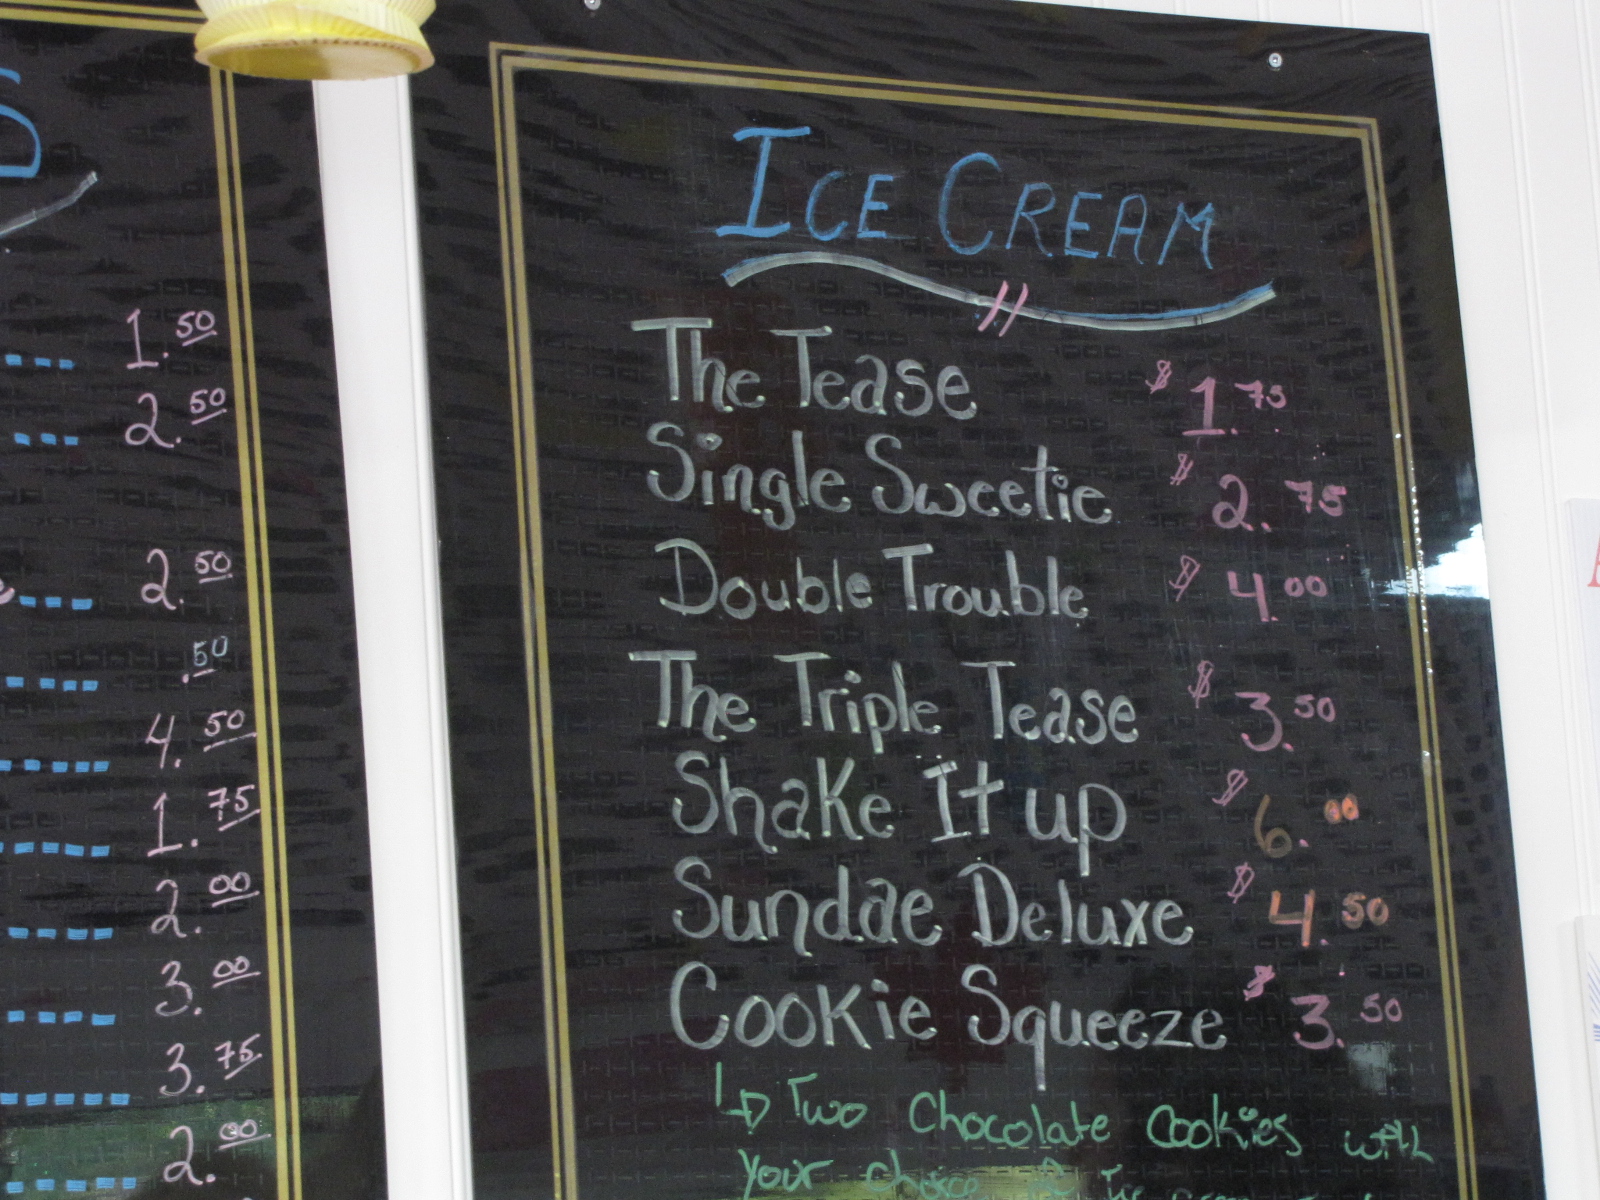 1.50
2.50
2.50
.50
4.50
1.75
2.00
3.00
3.75
2.00
ICE CREAM
The Tease $1.75
Single Sweetie $2.75
Double Trouble $4.00
The Triple Tease $3.50
Shake It up $6.00
Sundae Deluxe $4.50
Cookie Squeeze $3.50
Two Chocolate Cookies with
your choice of Ice cream